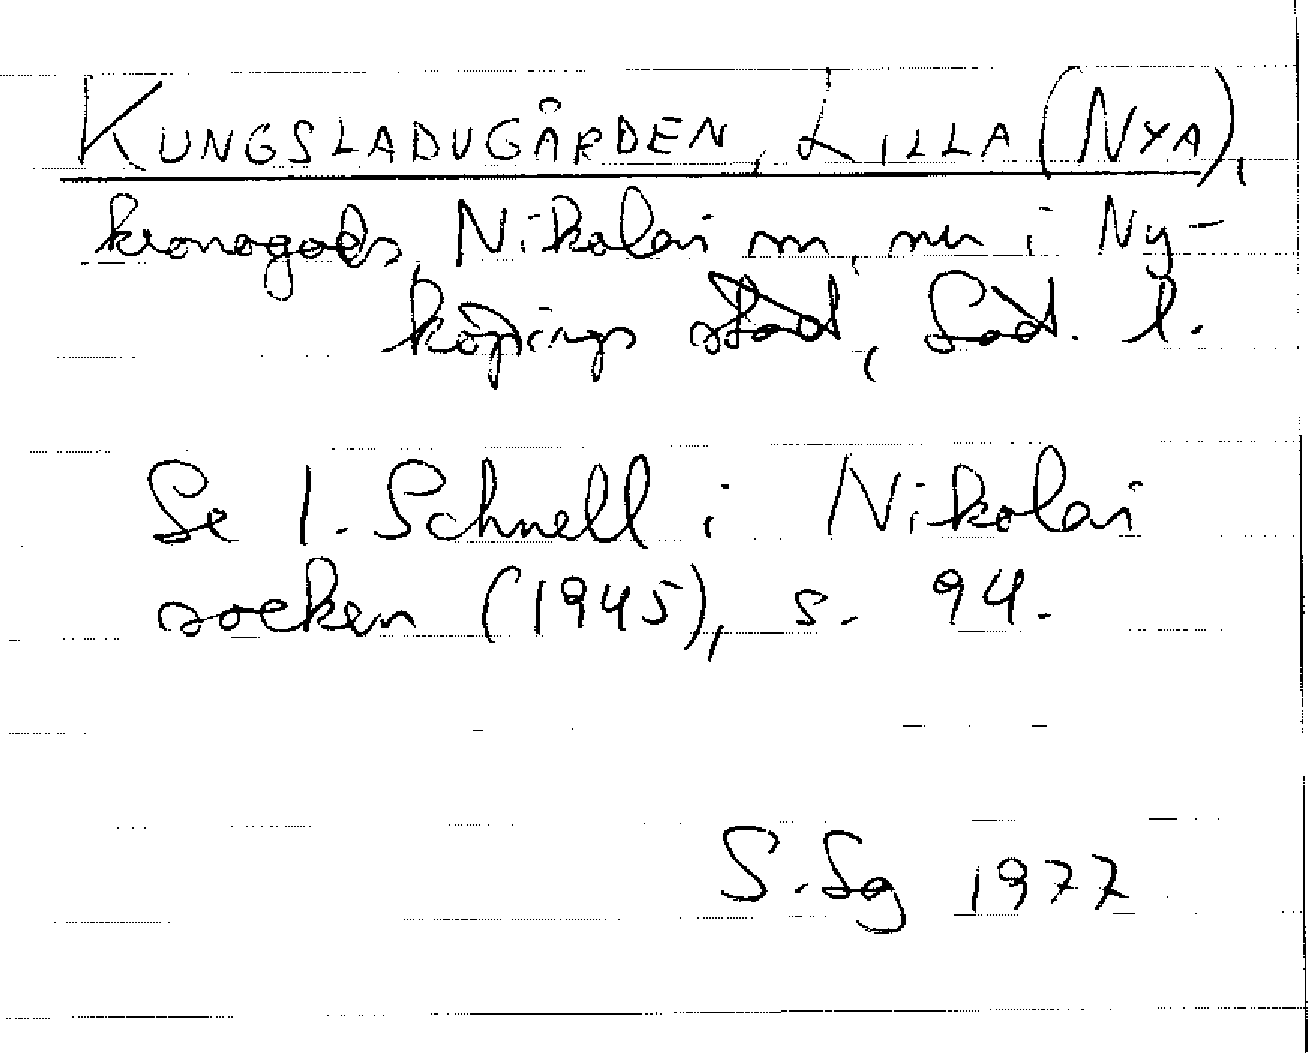 KUNGSLADUGÅRDEN, LILLA (NYA),
kronogods, Nikolai sn, nu i Ny-
köpings stad, Söd. l.
Se I. Schnell i Nikolai
socken (1945), s. 94.
S. Sg 1977